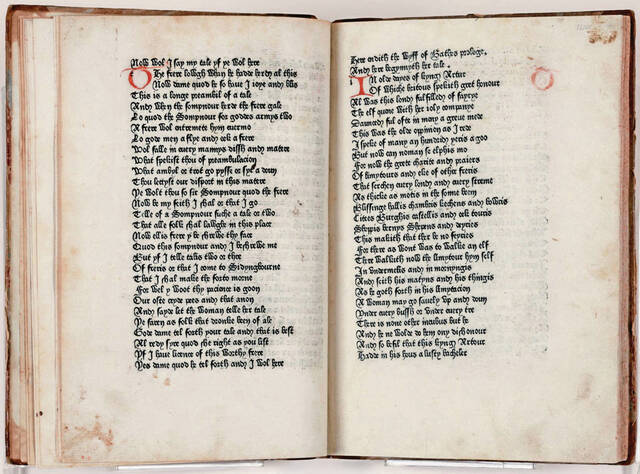 Now wol I say my tale yf ye wol here
The frere lowgh whan he hadde herde al this
Now dame quod he so haue I ioye and blis
This is a longe preambil of a tale
Andy whan the sompnour herde the frere gale
Lo quod the Sompnour for goddes armys two
A frere wol entremete hym euermo
Lo gode men a flye andy eek a frere
Wol falle in euery mannys dissh andy matere
What spekist thou of preambulacion
What ambil or trot go pysse or sye a doun
Thou lettyst our disport in this matere
Ye wolt thou so sir Sompnour quod the frere
Now be my feith I shal or that I go
Telle of a Sompnour suche a tale or two
That alle folk shal lawghe in this place
Now ellis frere y beshrewe thy face
Quod this sompnour andy I beshrewe me
But yf I telle talis two or thre
Of freris or that I come to Sidyngbourne
That I shal make the forto morne
For wel y woot thy pacience is goon
Our oste cryde pees andy that anon
Andy sayde let the woman telle her tale
Ye faren as folk that dronke been of ale
Gode dame tel forth your tale andy that is best
Al redy syre quod she right as you list
Yf I haue licence of this worthy frere
Yes dame quod he tel forth andy I wol here
Here endith the wyff of Bathes prologe
Andy here begynnyth her tale
In olde dayes of kyngy Artur
Of whiche britouns spekith gret honour
Al was this londy ful filledy of fayrye
The elf quene with her ioly companye
Dauncedy ful ofte in many a greue mede
This was the olde oppinion as I rede
I speke of many an hundridy yeris a goo
But now can noman se elphis mo
For now the grete charite andy praiers
Of lymytours andy eke of other freris
That serchen euery londy andy euery streme
As thicke as motis in the sonne beem
Blissinge hallis chambris kechens andy bowris
Citees Burghis castellis andy eek touris
Thropis bernys Shepens andy deyries
This makith that ther be no feyries
For there as wont was to walke an elf
Ther walkith now the limytour hym self
In vndermelis andy in mornyngis
Andy seith his matyns andy his thingis
As he goth forth in his limytacion
A woman may go sauely vp andy doun
Vnder euery bussh or vnder euery tre
There is none other incubus but he
Andy he ne wolde do hem ony dishonour
Andy so befil that this kyngy Artour
Hadde in his hous a lusty bacheler